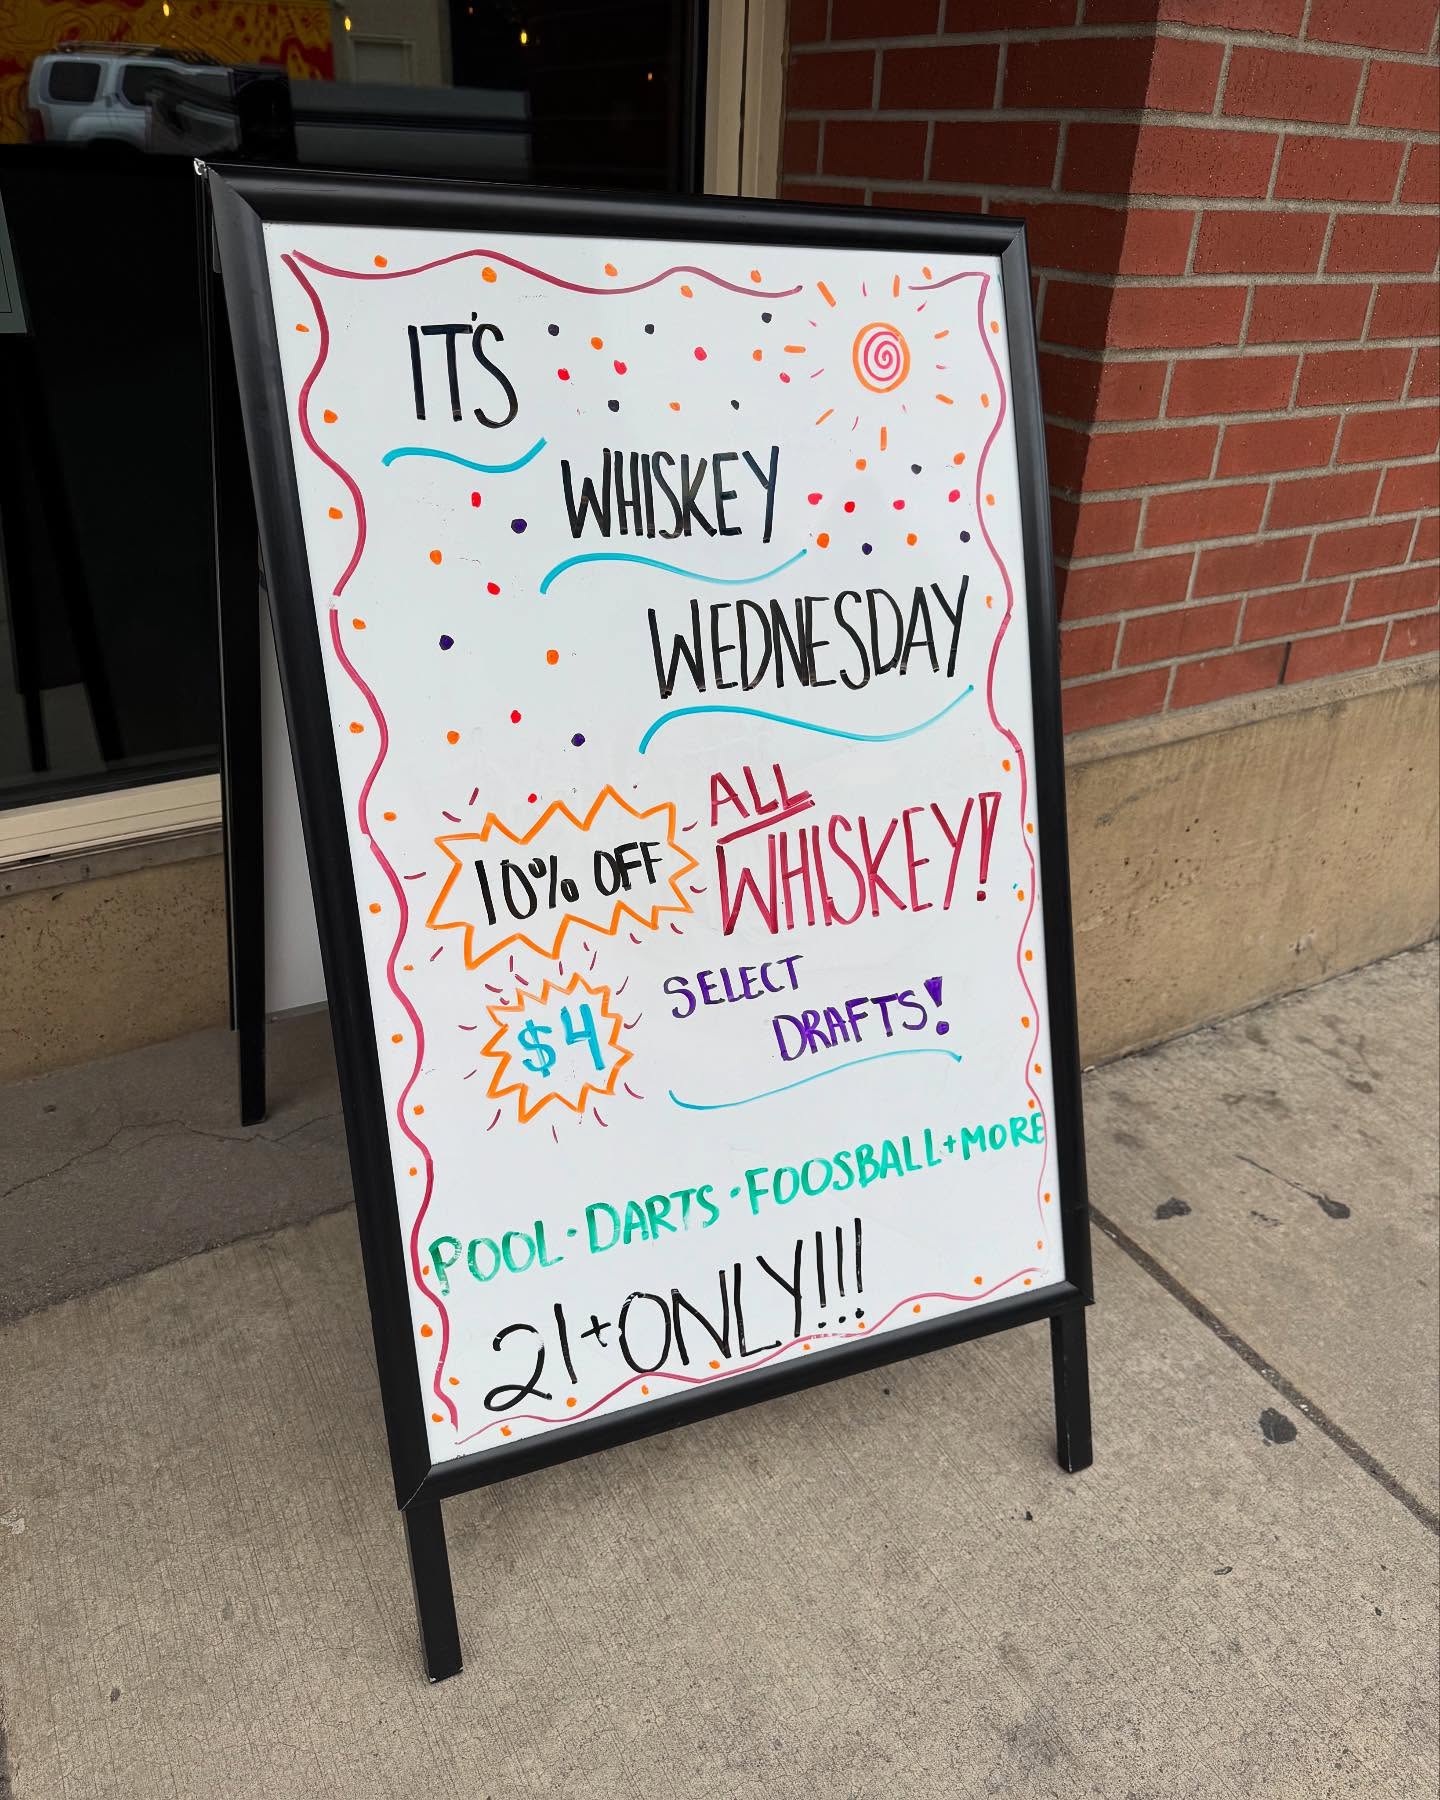 IT'S
WHISKEY
WEDNESDAY
10% OFF
ALL
WHISKEY!
$4
SELECT
DRAFTS!
POOL · DARTS · FOOSBALL + MORE
21+ ONLY!!!